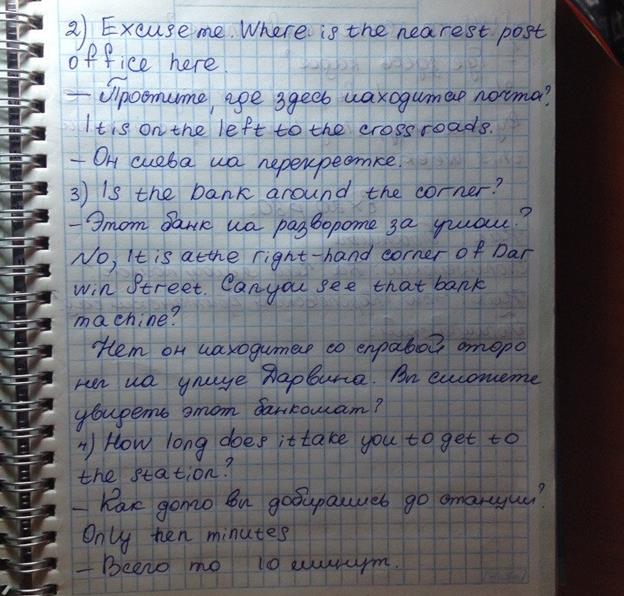 2) Excuse me. Where is the nearest post
office here.
– Простите, где здесь находится почта?
It is on the left to the cross roads.
– Он слева на перекрестке.
3) Is the bank around the corner?
– Этот банк на развороте за углом?
No, It is at the right-hand corner of Dar
win Street. Can you see that bank
machine?
Нет он находится со справой сторо
ны на улице Дарвина. Вы сможете
увидеть этот банкомат?
4) How long does it take you to get to
the station?
– Как долго вы добирались до станции?
Only ten minutes
– Всего то 10 минут.